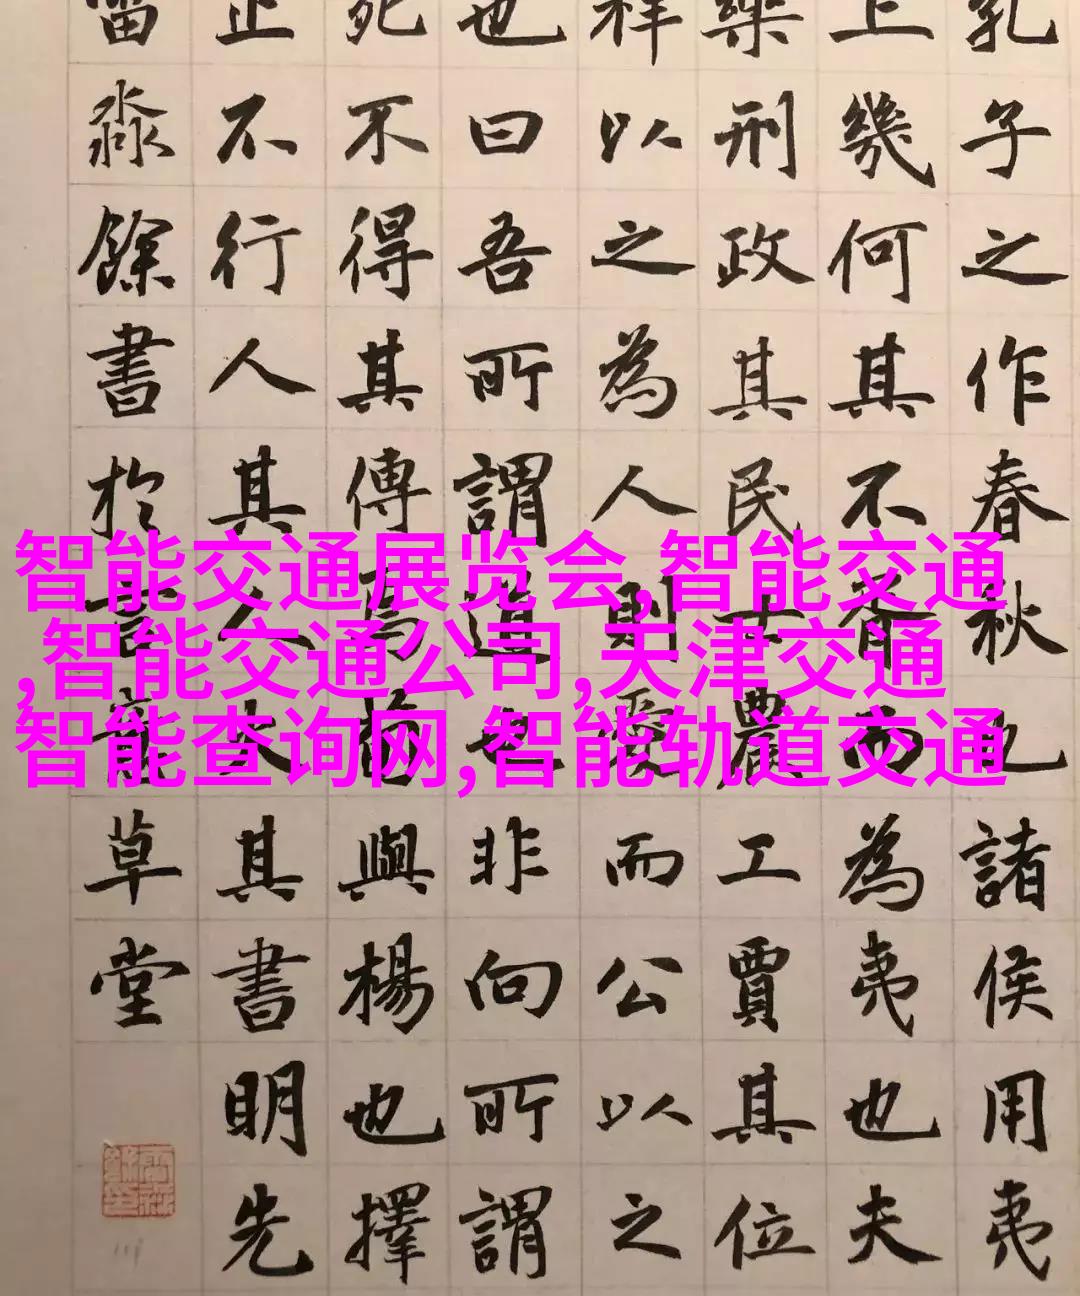 孔子之作春秋也諸侯用夷
上幾何其不胥而為夷也夫
樂刑政其民士農工賈其位
祥以之為人則愛而公以之
也曰吾所謂道也非向所謂
死不得其傳焉荀與楊也擇
止不行人其人火其書明先
淼餘書於草堂
智能交通展览会,智能交通
,智能交通公司,天津交通
智能查询网,智能轨道交通